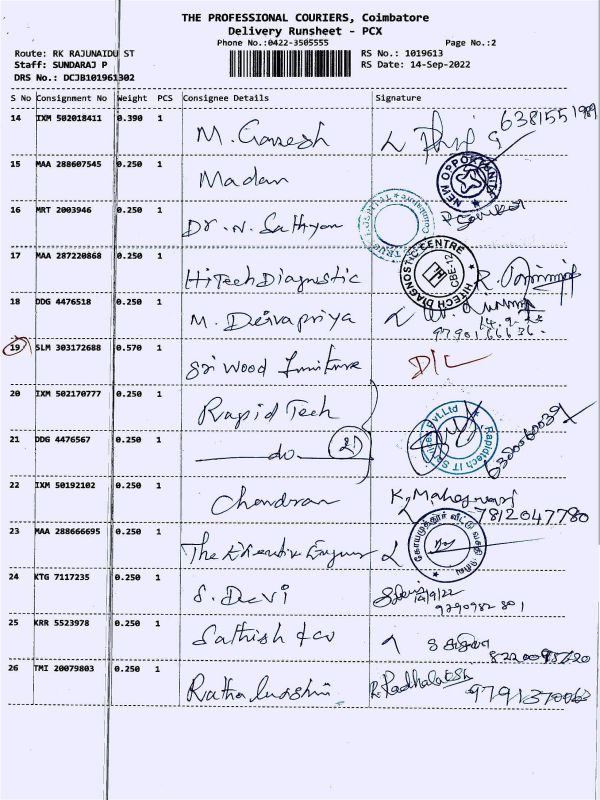 THE PROFESSIONAL COURIERS, Coimbatore
Delivery Runsheet - PCX
Phone No.:0422-3505555 Page No.:2
Route: RK RAJUNAIDU ST RS No.: 1019613
Staff: SUNDARAJ P RS Date: 14-Sep-2022
DRS No.: DCJB101961302
S No Consignment No Weight PCS Consignee Details Signature
14 IXM 502018411 0.390 1 M. Ganesh 6381551989
15 MAA 288607545 0.250 1 Madan NEW OPPORTUNITY
16 MRT 2003946 0.250 1 Dr. N. Sathyan
17 MAA 287220868 0.250 1 HiTech Diagnostic HITECH DIAGNOSTIC CENTRE CBE-12
18 DDG 4476518 0.250 1 M. Deivapriya 9790166636
19 SLM 303172688 0.570 1 Sri Wood Furniture D/L
20 IXM 502170777 0.250 1 Rapid Tech Rapidtech IT Services Pvt.Ltd
21 DDG 4476567 0.250 1 do (2)
22 IXM 50192102 0.250 1 Chandran K. Maheswari
7812047780
23 MAA 288666695 0.250 1 The Executive Engineer
24 KTG 7117235 0.250 1 S. Devi 14/9/22
9290982801
25 KRR 5523978 0.250 1 Sathish & co
26 TMI 20079803 0.250 1 R. Radhalakshi 9791370063